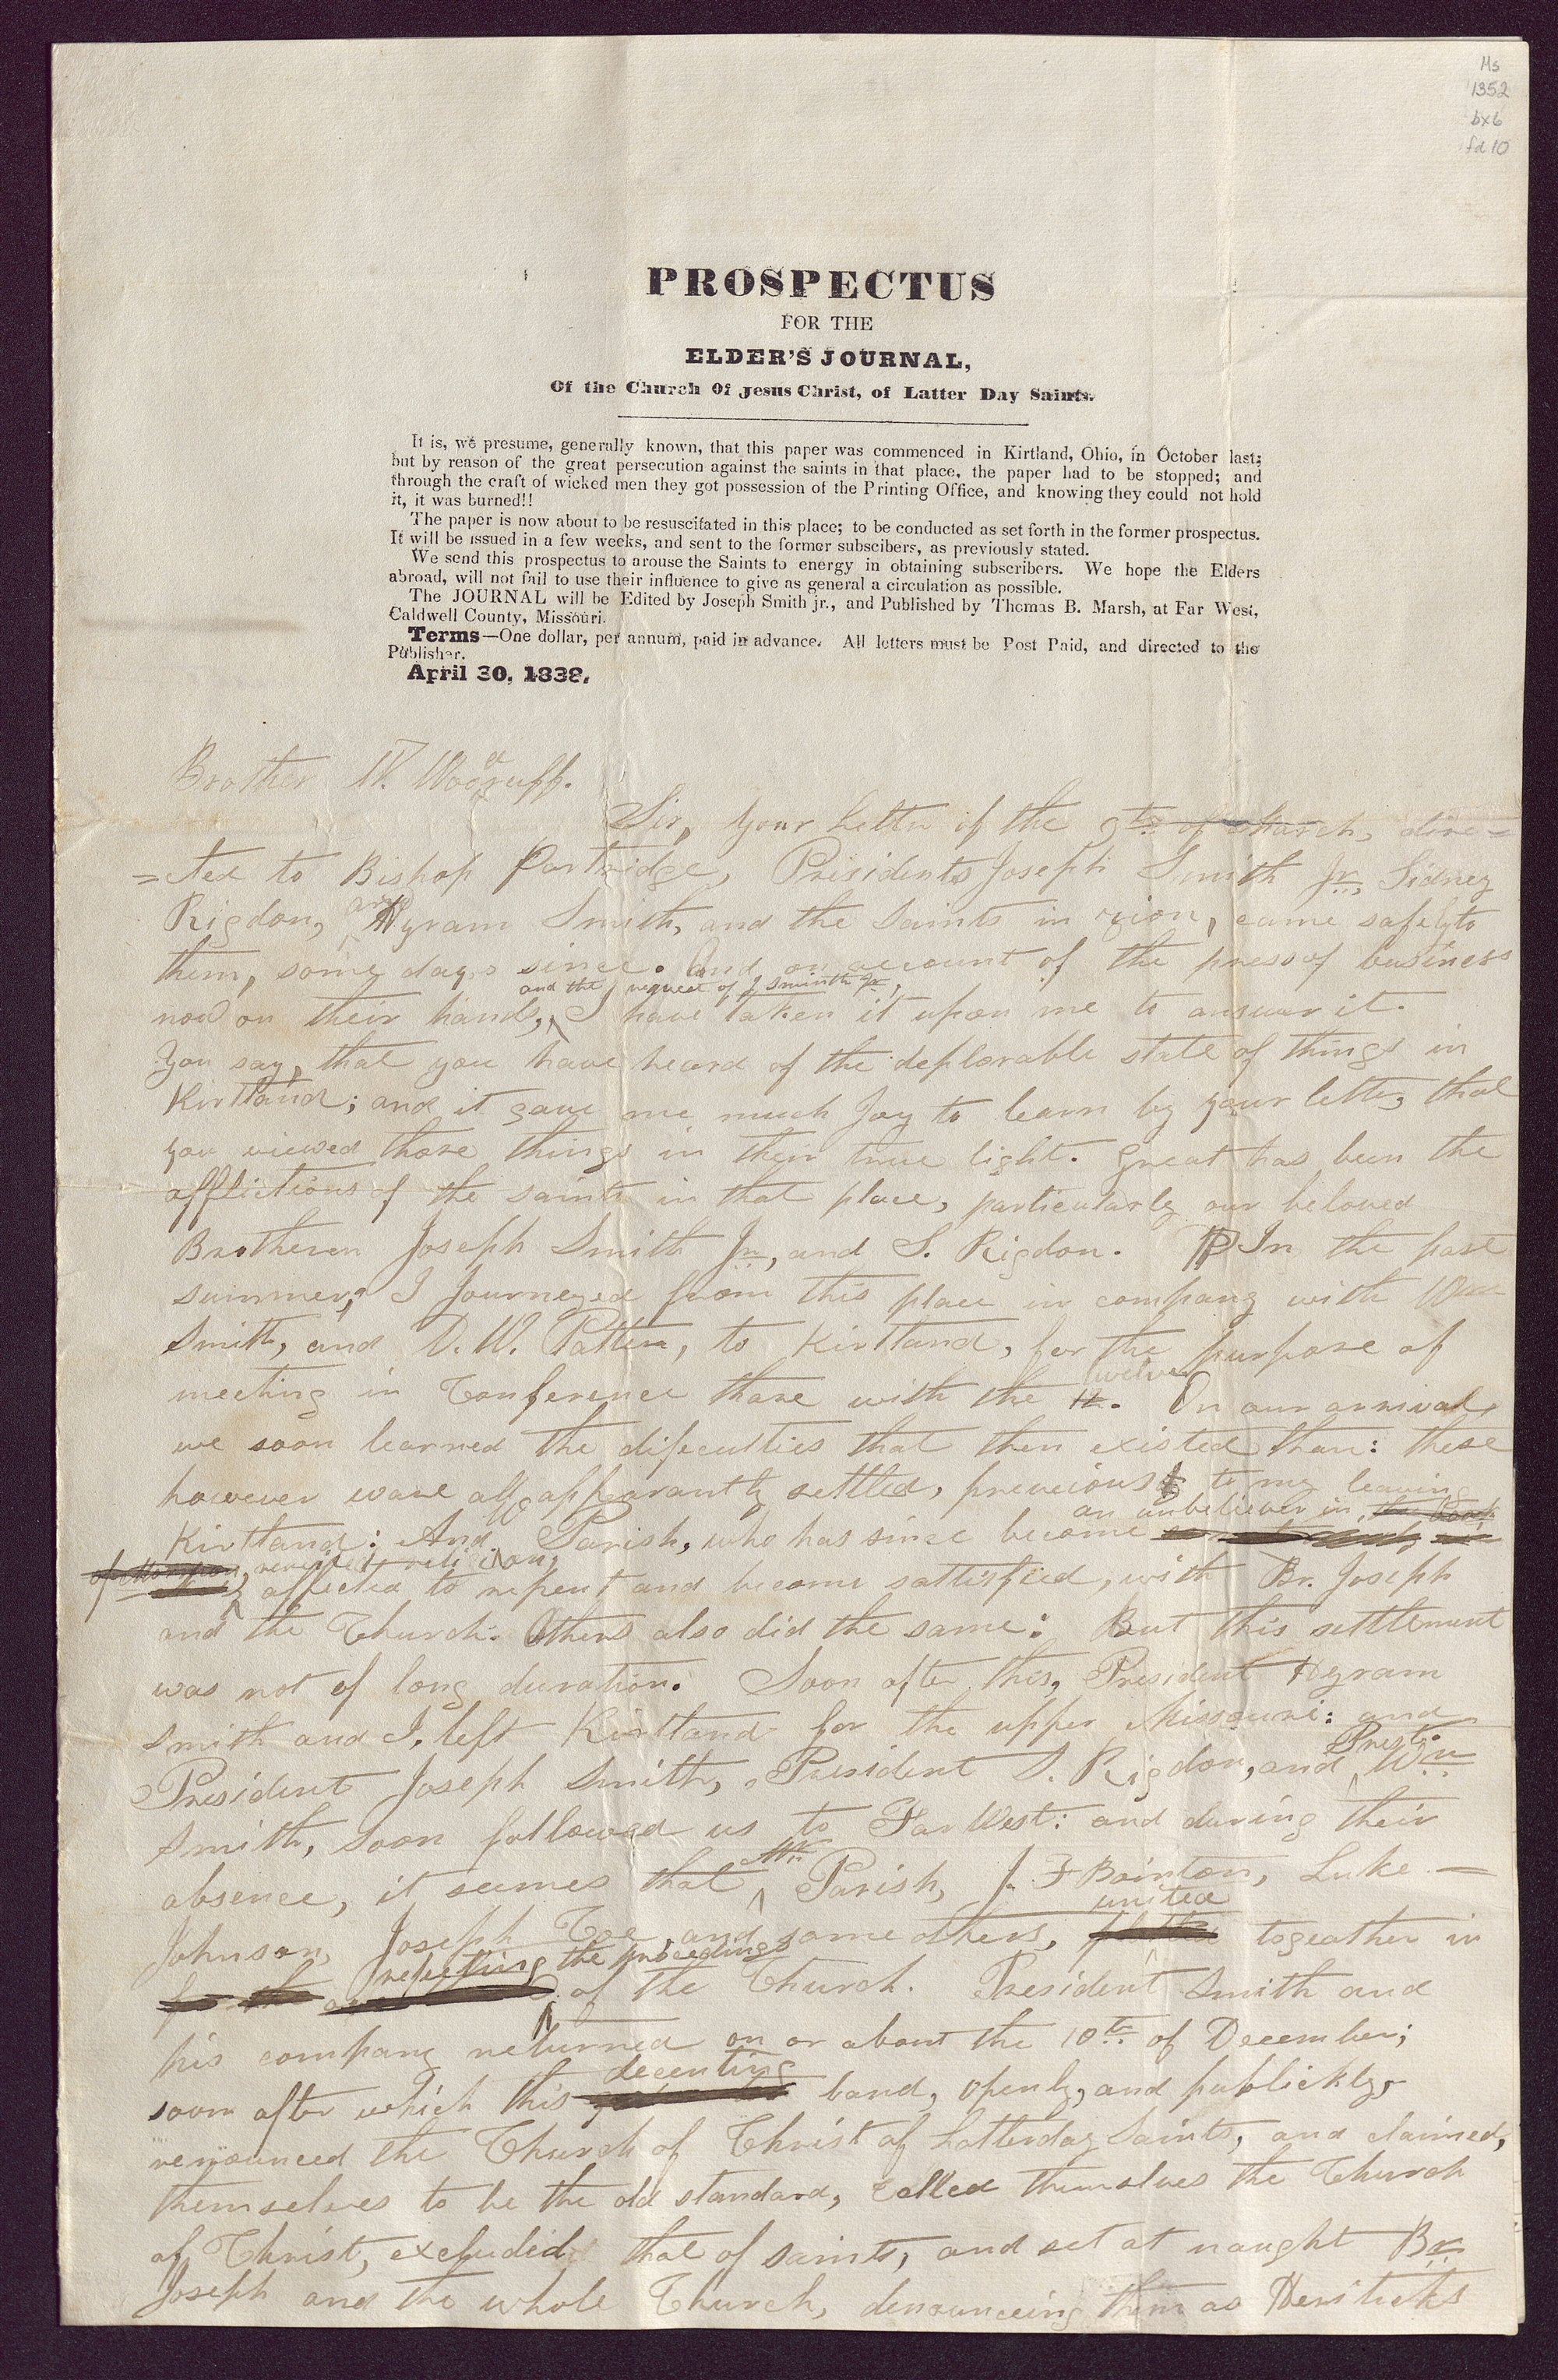 Ms
1352
bx6
fd 10
PROSPECTUS
FOR THE
ELDER'S JOURNAL,
Of the Church Of Jesus Christ, of Latter Day Saints.
It is, we presume, generally known, that this paper was commenced in Kirtland, Ohio, in October last;
but by reason of the great persecution against the saints in that place, the paper had to be stopped; and
through the craft of wicked men they got possession of the Printing Office, and knowing they could not hold
it, it was burned!!
The paper is now about to be resuscitated in this place; to be conducted as set forth in the former prospectus.
It will be issued in a few weeks, and sent to the former subscibers, as previously stated.
We send this prospectus to arouse the Saints to energy in obtaining subscribers. We hope the Elders
abroad, will not fail to use their influence to give as general a circulation as possible.
The JOURNAL will be Edited by Joseph Smith jr., and Published by Thomas B. Marsh, at Far West,
Caldwell County, Missouri.
Terms—One dollar, per annum, paid in advance. All letters must be Post Paid, and directed to the
Publisher.
April 30, 1838.
Brother W. Woodruff.
Sir, Your letter of the 9th of March, dire=
=cted to Bishop Partridge, Presidents Joseph Smith Jr., Sidney
Rigdon, and Hyram Smith, and the Saints in zion, came safely to
them, some days since. And on account of the press of business
and the request of J Smith Jr,
now on their hands, I have taken it upon me to answer it.
You say, that you have heard of the deplorable state of things in
Kirtland; and it gave me much Joy to learn by your letter, that
you viewed those things in their true light. Great has been the
afflictions of the saints in that place, particularly our beloved
Brotheren Joseph Smith Jr., and S. Rigdon. In the past
summer, I Journeyed from this place in company with Wm
Smith, and D. W. Patten, to Kirtland, for the purpose of
twelve
meeting in Conference thare with the 12. On our arrival,
we soon learned the dificulties that then existed thare: these
however ware all appearantly settled, previous to my leaving
an unbeliever in, the Book
Kirtland: And Parish, who has since become
of Mormon, revealed religion,
affected to repent and become sattisfied, with Br. Joseph
and the Church. Others also did the same: But this settlement
was not of long duration. Soon after this, President Hyram
Smith and I, left Kirtland for the upper Missouri: and
Prest.
President Joseph Smith, President S. Rigdon, and Wm
Smith, soon followed us to Far West: and during their
Mr.
absence, it seemes that Parish, J. F Bointon, Luke
united
Johnson, Joseph Coe, and some others, togeather in
refuting the proceedings
of the Church. President Smith and
his company returned on or about the 10th of December;
decenting
soon after which this band, openly, and publickly,
renounced the Church of Christ of Latterday Saints, and claimed,
themselves to be the old standard, called themselves the Church
of Christ, excluded that of saints, and set at naught Br.
Joseph and the whole Church, denounceing them as Heriticks